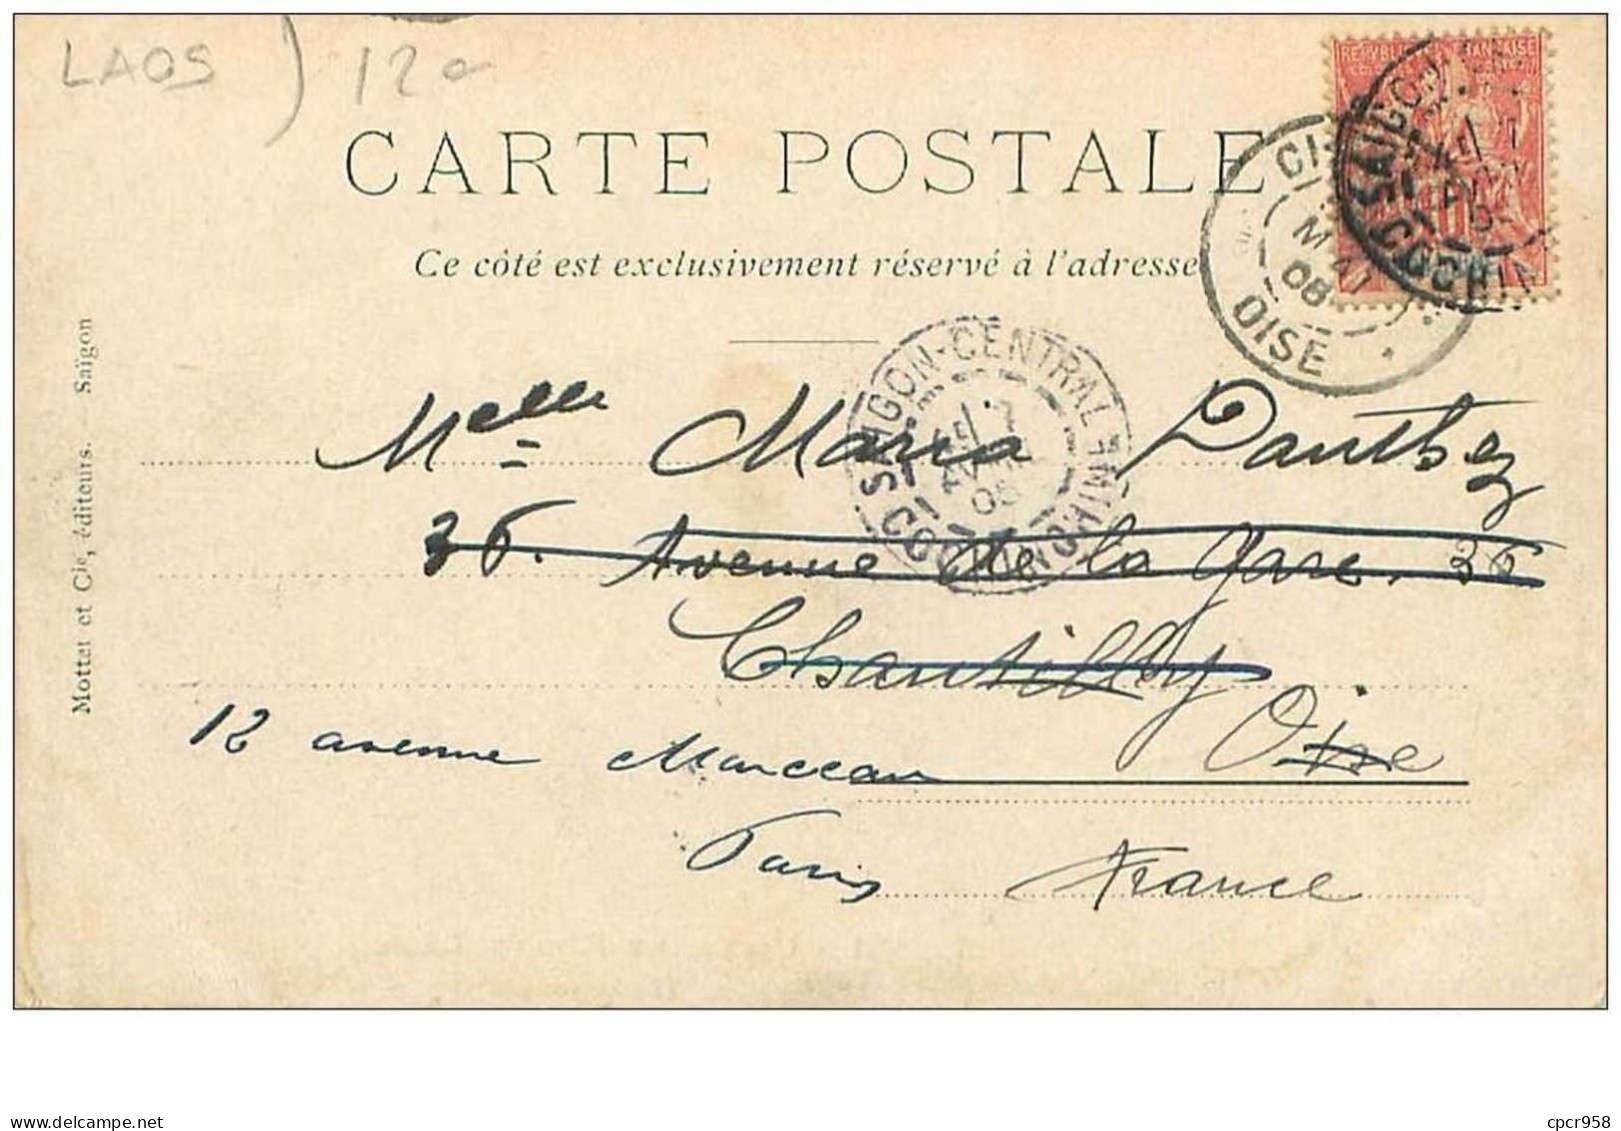 LAOS ) 12e
CARTE POSTALE
Ce côté est exclusivement réservé à l'adresse
SAIGON COCHIN
MAI 08 OISE
SAIGON-CENTRAL COCHINCHINE
Melle Maria Panthez
36. Avenue de la Gare. 36
Chantilly
Oise
12 avenue Marceau
Paris
France
Mottet et Cie, éditeurs. — Saïgon
www.delcampe.net
cpcr958